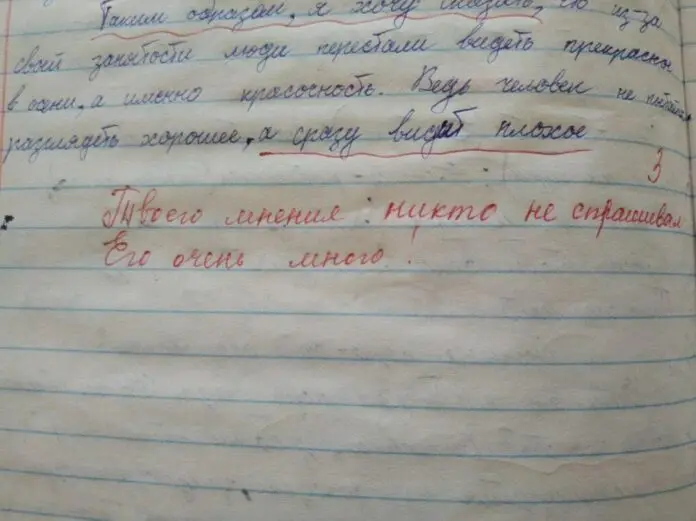 Таким образом, я хочу сказать, что из-за
своей занятости люди перестали видеть прекрасное
в осени, а именно красочность. Ведь человек не
разглядеть хорошее, а сразу видит плохое
3
Твоего мнения никто не спрашивал
Его очень много!